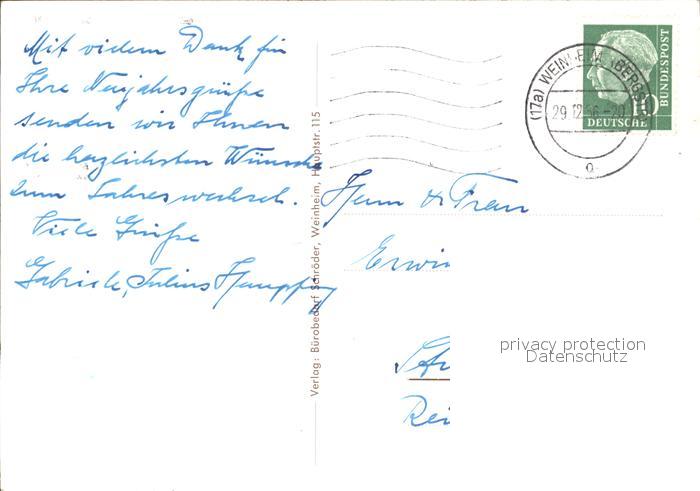 Mit vielem Dank für
Ihre Neujahrsgrüße
senden wir Ihnen
die herzlichsten Wünsche
zum Jahreswechsel.
Viele Grüße
Gabriele, Julius
Verlag: Bürobedarf Schröder, Weinheim, Hauptstr. 115
(17a) WEINHEIM (BERGSTR
29.12.56.-20
10
DEUTSCHE
BUNDESPOST
Herrn & Frau
Erwin
privacy protection
Datenschutz
Rei